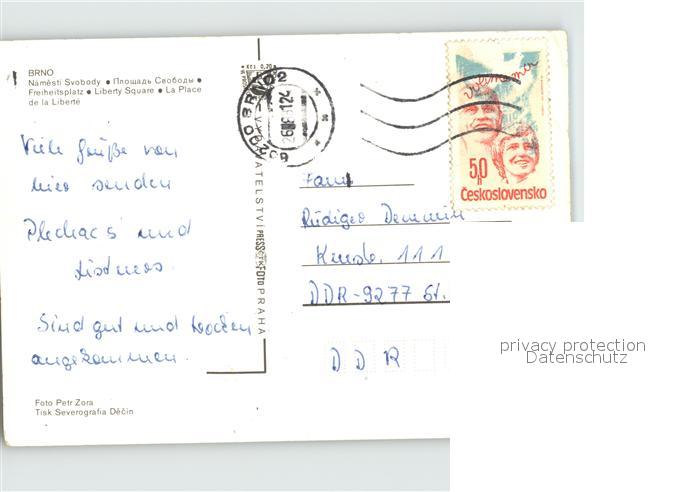 BRNO
Náměstí Svobody • Площадь Свободы •
Freiheitsplatz • Liberty Square • La Place
de la Liberté
Viele Grüße von
hier senden
Plechac's und
Sind gut und trocken
angekommen.
Foto Petr Zora
Tisk Severografia Děčín
Kčs 0,20
VATELSTVÍ PRESSFOTO PRAHA
BRNO 2
602 00
volíme mír
50
h
Československo
Fam.
Rüdiger Demmin
111
DDR-9277
DDR
privacy protection
Datenschutz